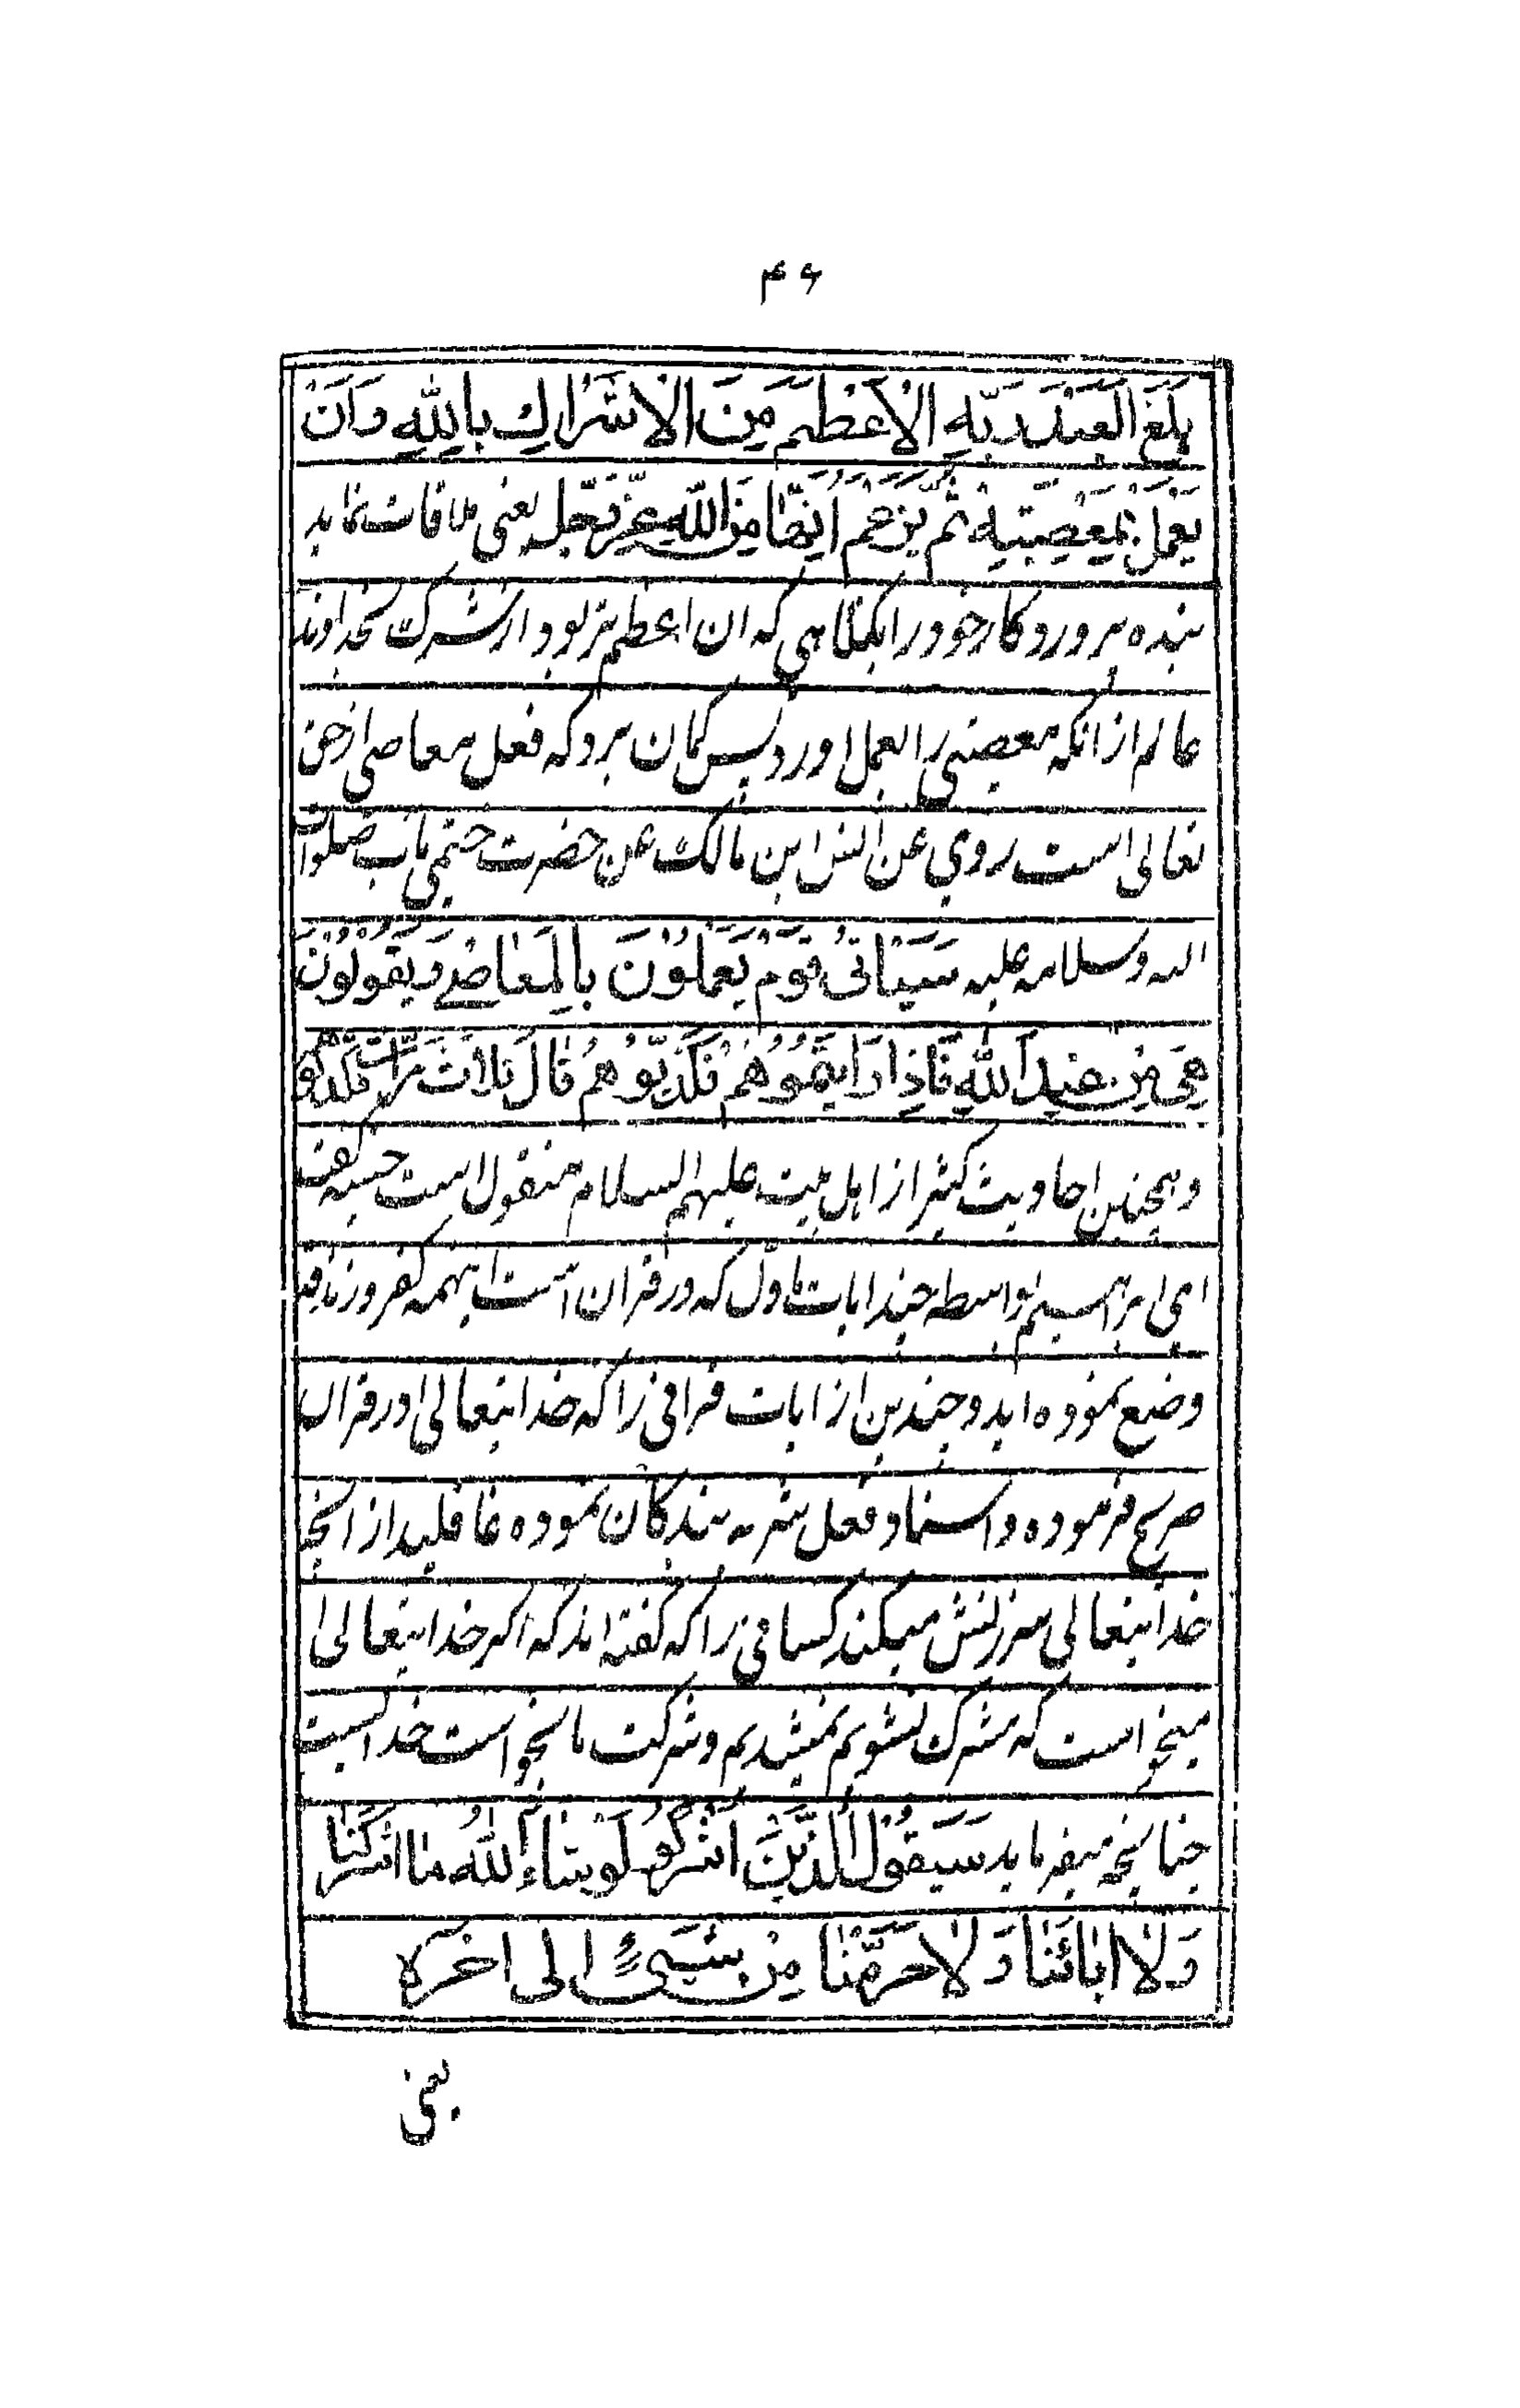 ۴۶
يَلْغَ الْعَبْدُ رَبَّهُ الْاَعْظَمَ مِنَ الْاَشْرَاكِ بِاللهِ وَاَنْ
يَعْمَلَ بِمَعْصِيَتِهِ ثُمَّ يَزْعَمُ اَنَّهَا مِنَ اللهِ عَزَّوَجَلَّ یعنی ملاقات نماید
بنده پروردکار خود را بکناهی که ان اعظم تر بود از شرک بخداوند
عالم از انکه معصیتی را بعمل اورد پس کمان برد که فعل معاصی از حق
تعالی است روي عن انس ابن مالک عن حضرت ختمی ماب صلوات
الله وسلامه علیه سَيَاتِى قَوْمٌ يَعْمَلُوْنَ بِالْمَعَاصِى وَ يَقُوْلُوْنَ
هِىَ مِنْ عِنْدِ اللهِ فَاِذَا رَايْتُمُوْهُمْ فَكَذِّبُوْهُمْ قَالَ ثَلاثَ مَرَّاتٍ
وهمچنین احادیث کثیر از اهل بیت علیهم السلام منقول است حسنیه کفت
ای ابراهیم بواسطه چند ایات ماول که در قران است اینهمه کفر و زندقه
وضع نموده اید و چندین از ایات قرانی را که خدایتعالی در قران
صریح فرموده و اسناد فعل شر به بندکان نموده غافلید از انجه
خدایتعالی سرزنش میکند کسانی را که کفته اند که اکر خدایتعالی
میخواست که مشرک نشویم نمیشدیم و شرکت ما بخواست خداست
چنانچه میفرماید سَيَقُوْلُ الَّذِيْنَ اَشْرَكُوْ لَوْ شَاءَ اللهُ مَا اَشْرَكْنَا
وَلَا اٰبَائُنَا وَلَا حَرَّمْنَا مِنْ شَيْءٍ الى اخره
یعنی